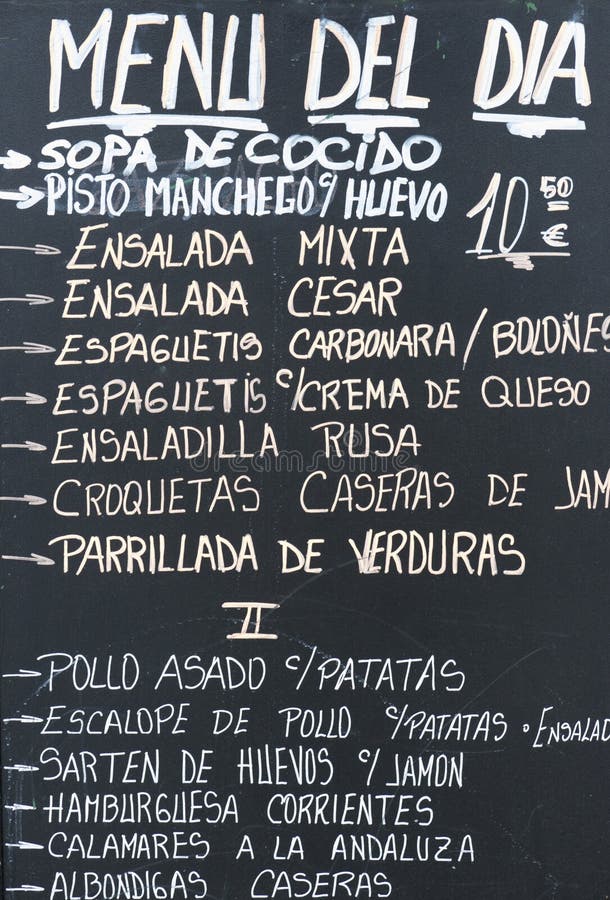 MENU DEL DIA
→ SOPA DE COCIDO
→ PISTO MANCHEGO C/ HUEVO
10 50 €
→ ENSALADA MIXTA
→ ENSALADA CESAR
→ ESPAGUETIS CARBONARA / BOLOÑES
→ ESPAGUETIS C/CREMA DE QUESO
→ ENSALADILLA RUSA
→ CROQUETAS CASERAS DE JAM
→ PARRILLADA DE VERDURAS
II
→ POLLO ASADO C/PATATAS
→ ESCALOPE DE POLLO C/PATATAS o ENSALAD
→ SARTEN DE HUEVOS C/ JAMON
→ HAMBURGUESA CORRIENTES
→ CALAMARES A LA ANDALUZA
→ ALBONDIGAS CASERAS
dreamstime